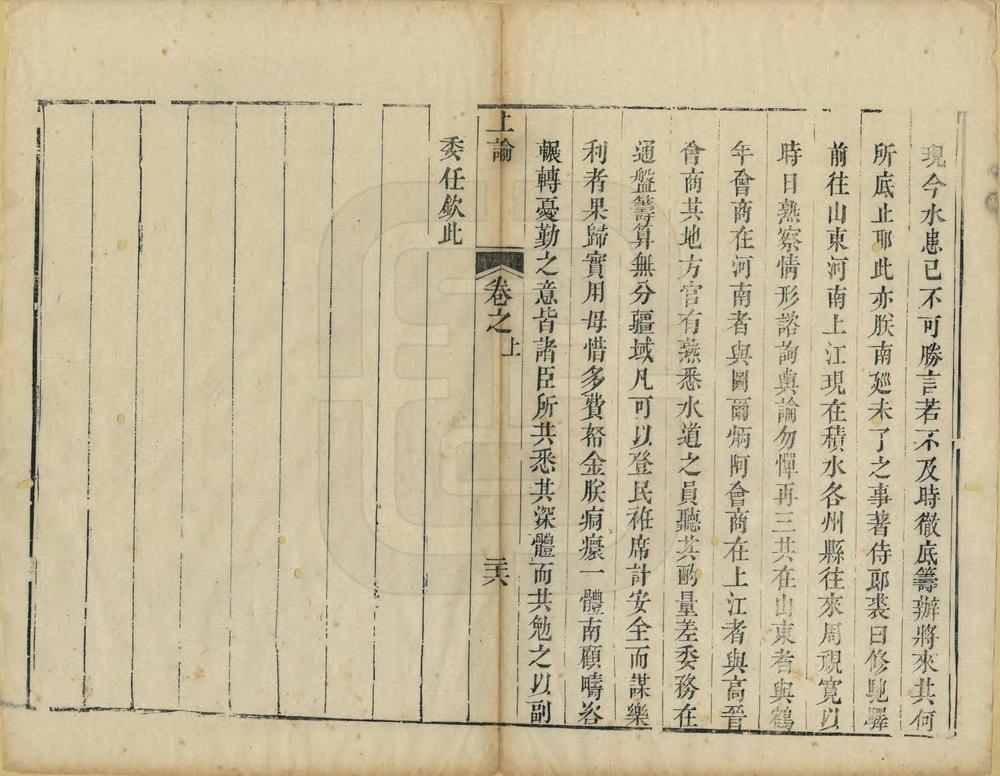 現今水患已不可勝言若不及時徹底籌辦將來其何
所底止耶此亦朕南廵未了之事著侍郎裘曰修馳驛
前往山東河南上江現在積水各州縣往來周視寛以
時日熟察情形諮詢輿論勿憚再三其在山東者與鶴
年會商在河南者與圖爾炳阿會商在上江者與高晉
會商其地方官有熟悉水道之員聽其酌量差委務在
通盤籌算無分疆域凡可以登民袵席計安全而謀樂
利者果歸實用毋惜多費帑金朕痌瘝一體南顧疇咨
輾轉憂勤之意皆諸臣所共悉其深體而共勉之以副
上諭
卷之上
三六
委任欽此